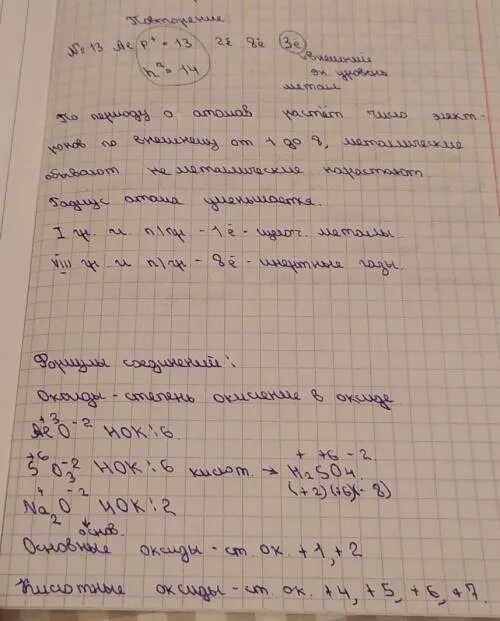 Повторение
№ 13 Al p⁺ = 13 2ē 8ē 3ē
n⁰ = 14 внешний
эн. уровень
металл
По периоду а атомов растёт число элект-
ронов по внешнему от 1 до 8, металлические
убывают неметаллические нарастают
Радиус атома уменьшается.
I гр. гл. п/гр. - 1ē - щелоч. металлы.
VIII гр. гл п/гр - 8ē - инертные газы.
Формулы соединений:
Оксиды - степень окисление в оксиде
Al⁺³O⁻² НОК: 6
S⁺⁶O₃⁻² НОК: 6 кислот. → H₂⁺S⁺⁶O₄⁻²
(+2)(+6)(-8)
Na₂⁺O⁻² НОК: 2
основ.
Основные оксиды - ст. ок. +1, +2
Кислотные оксиды - ст. ок. +4, +5, +6, +7.